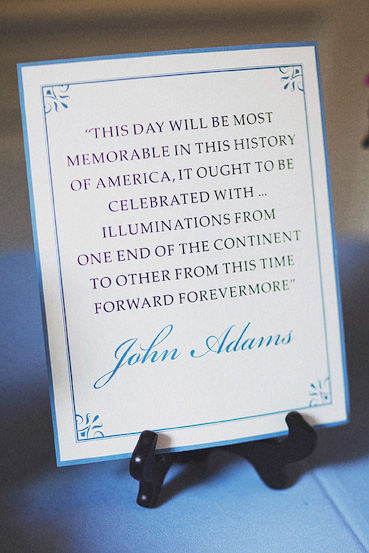 “THIS DAY WILL BE MOST
MEMORABLE IN THIS HISTORY
OF AMERICA, IT OUGHT TO BE
CELEBRATED WITH ...
ILLUMINATIONS FROM
ONE END OF THE CONTINENT
TO OTHER FROM THIS TIME
FORWARD FOREVERMORE”
John Adams